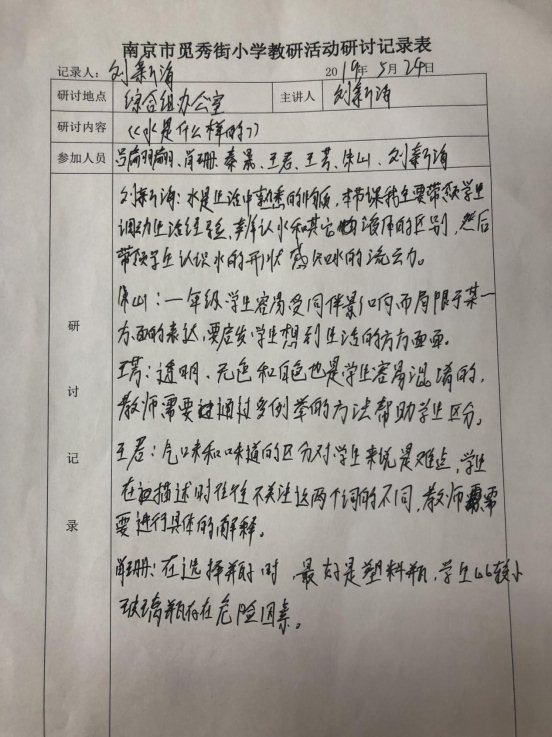 南京市觅秀街小学教研活动研讨记录表
记录人：刘新海 2019年5月24日
研讨地点 综合组办公室 主讲人 刘新海
研讨内容 《水是什么样的》
参加人员 吕前翩翩、肖珊、秦景、王君、王芳、朱山、刘新海
刘新海：水是生活中熟悉的物质，本节课我主要带领学生
调动生活经验、辨认水和其它物液体的区别，然后
带领学生认识水的形状感知水的流动力。
朱山：一年级学生容易受同伴影响而局限于某一
方面的表达，要启发学生想到生活的方方面面。
王芳：透明、无色和白色也是学生容易混淆的，
教师需要进通过多例举的方法帮助学生区分。
研讨记录
王君：气味和味道的区分对学生来说是难点，学生
在描述时往往不关注这两个词的不同，教师需
要进行具体的解释。
肖珊：在选择瓶时，最好是塑料瓶，学生比较小
玻璃瓶存在危险因素。